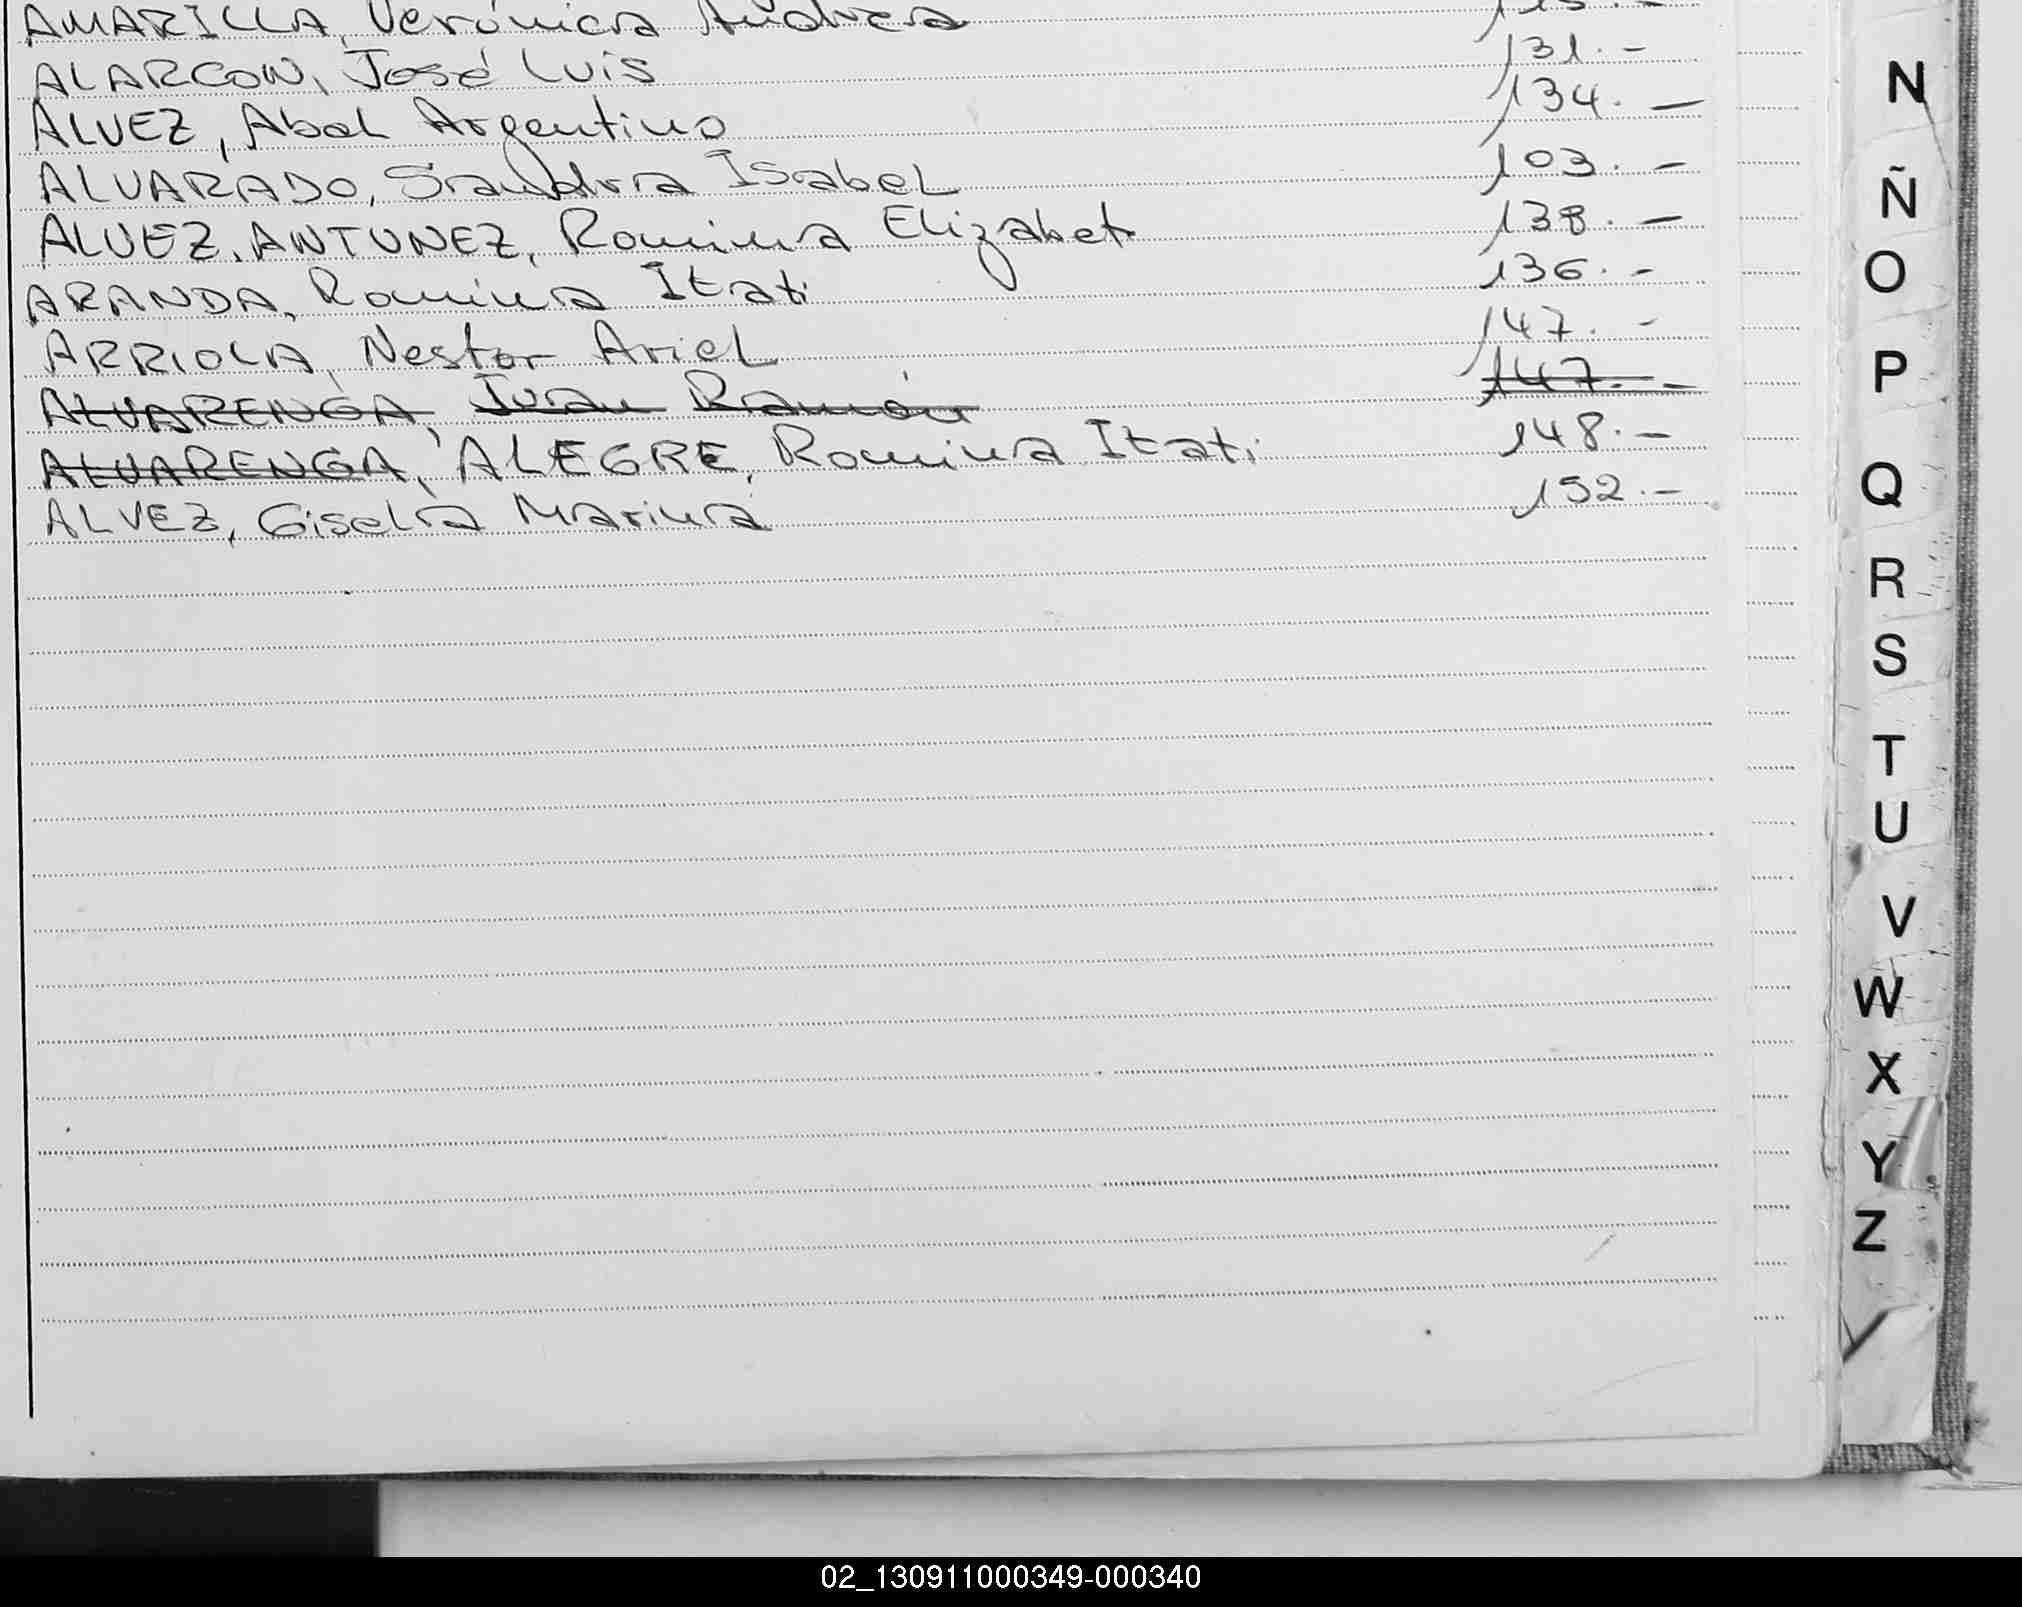 AMARILLA, Verónica Andrea
ALARCON, José Luis 131.-
ALVEZ, Abel Argentino 134.-
ALVARADO, Sandra Isabel 103.-
ALVEZ. ANTUNEZ, Romina Elizabet 138.-
ARANDA, Romina Itati 136.-
ARRIOLA, Nestor Ariel 147.-
ALVARENGA, Juan Ramón 147.-
ALVARENGA, ALEGRE, Romina Itati 148.-
ALVEZ, Gisela Marina 152.-
N
Ñ
O
P
Q
R
S
T
U
V
W
X
Y
Z
02_130911000349-000340